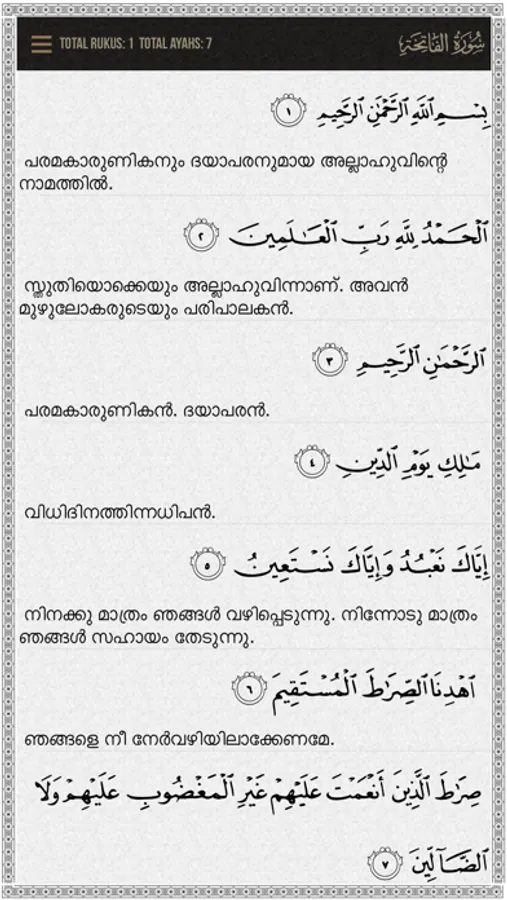 TOTAL RUKUS: 1 TOTAL AYAHS: 7 سُورَةُ الْفَاتِحَةِ
بِسْمِ اللَّهِ الرَّحْمَٰنِ الرَّحِيمِ ١
പരമകാരുണികനും ദയാപരനുമായ അല്ലാഹുവിന്റെ
നാമത്തിൽ.
اَلْحَمْدُ لِلَّهِ رَبِّ الْعَالَمِينَ ٢
സ്തുതിയൊക്കെയും അല്ലാഹുവിന്നാണ്. അവൻ
മുഴുലോകരുടെയും പരിപാലകൻ.
الرَّحْمَٰنِ الرَّحِيمِ ٣
പരമകാരുണികൻ. ദയാപരൻ.
مَٰلِكِ يَوْمِ الدِّينِ ٤
വിധിദിനത്തിന്നധിപൻ.
إِيَّاكَ نَعْبُدُ وَإِيَّاكَ نَسْتَعِينُ ٥
നിനക്കു മാത്രം ഞങ്ങൾ വഴിപ്പെടുന്നു. നിന്നോടു മാത്രം
ഞങ്ങൾ സഹായം തേടുന്നു.
اَهْدِنَا الصِّرَٰطَ الْمُسْتَقِيمَ ٦
ഞങ്ങളെ നീ നേർവഴിയിലാക്കേണമേ.
صِرَٰطَ الَّذِينَ أَنْعَمْتَ عَلَيْهِمْ غَيْرِ الْمَغْضُوبِ عَلَيْهِمْ وَلَا
الضَّآلِّينَ ٧